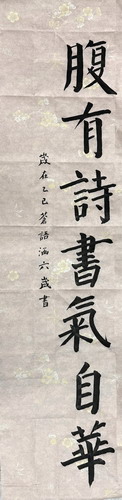 腹有詩書氣自華
歲在乙巳蒼語涵六歲書